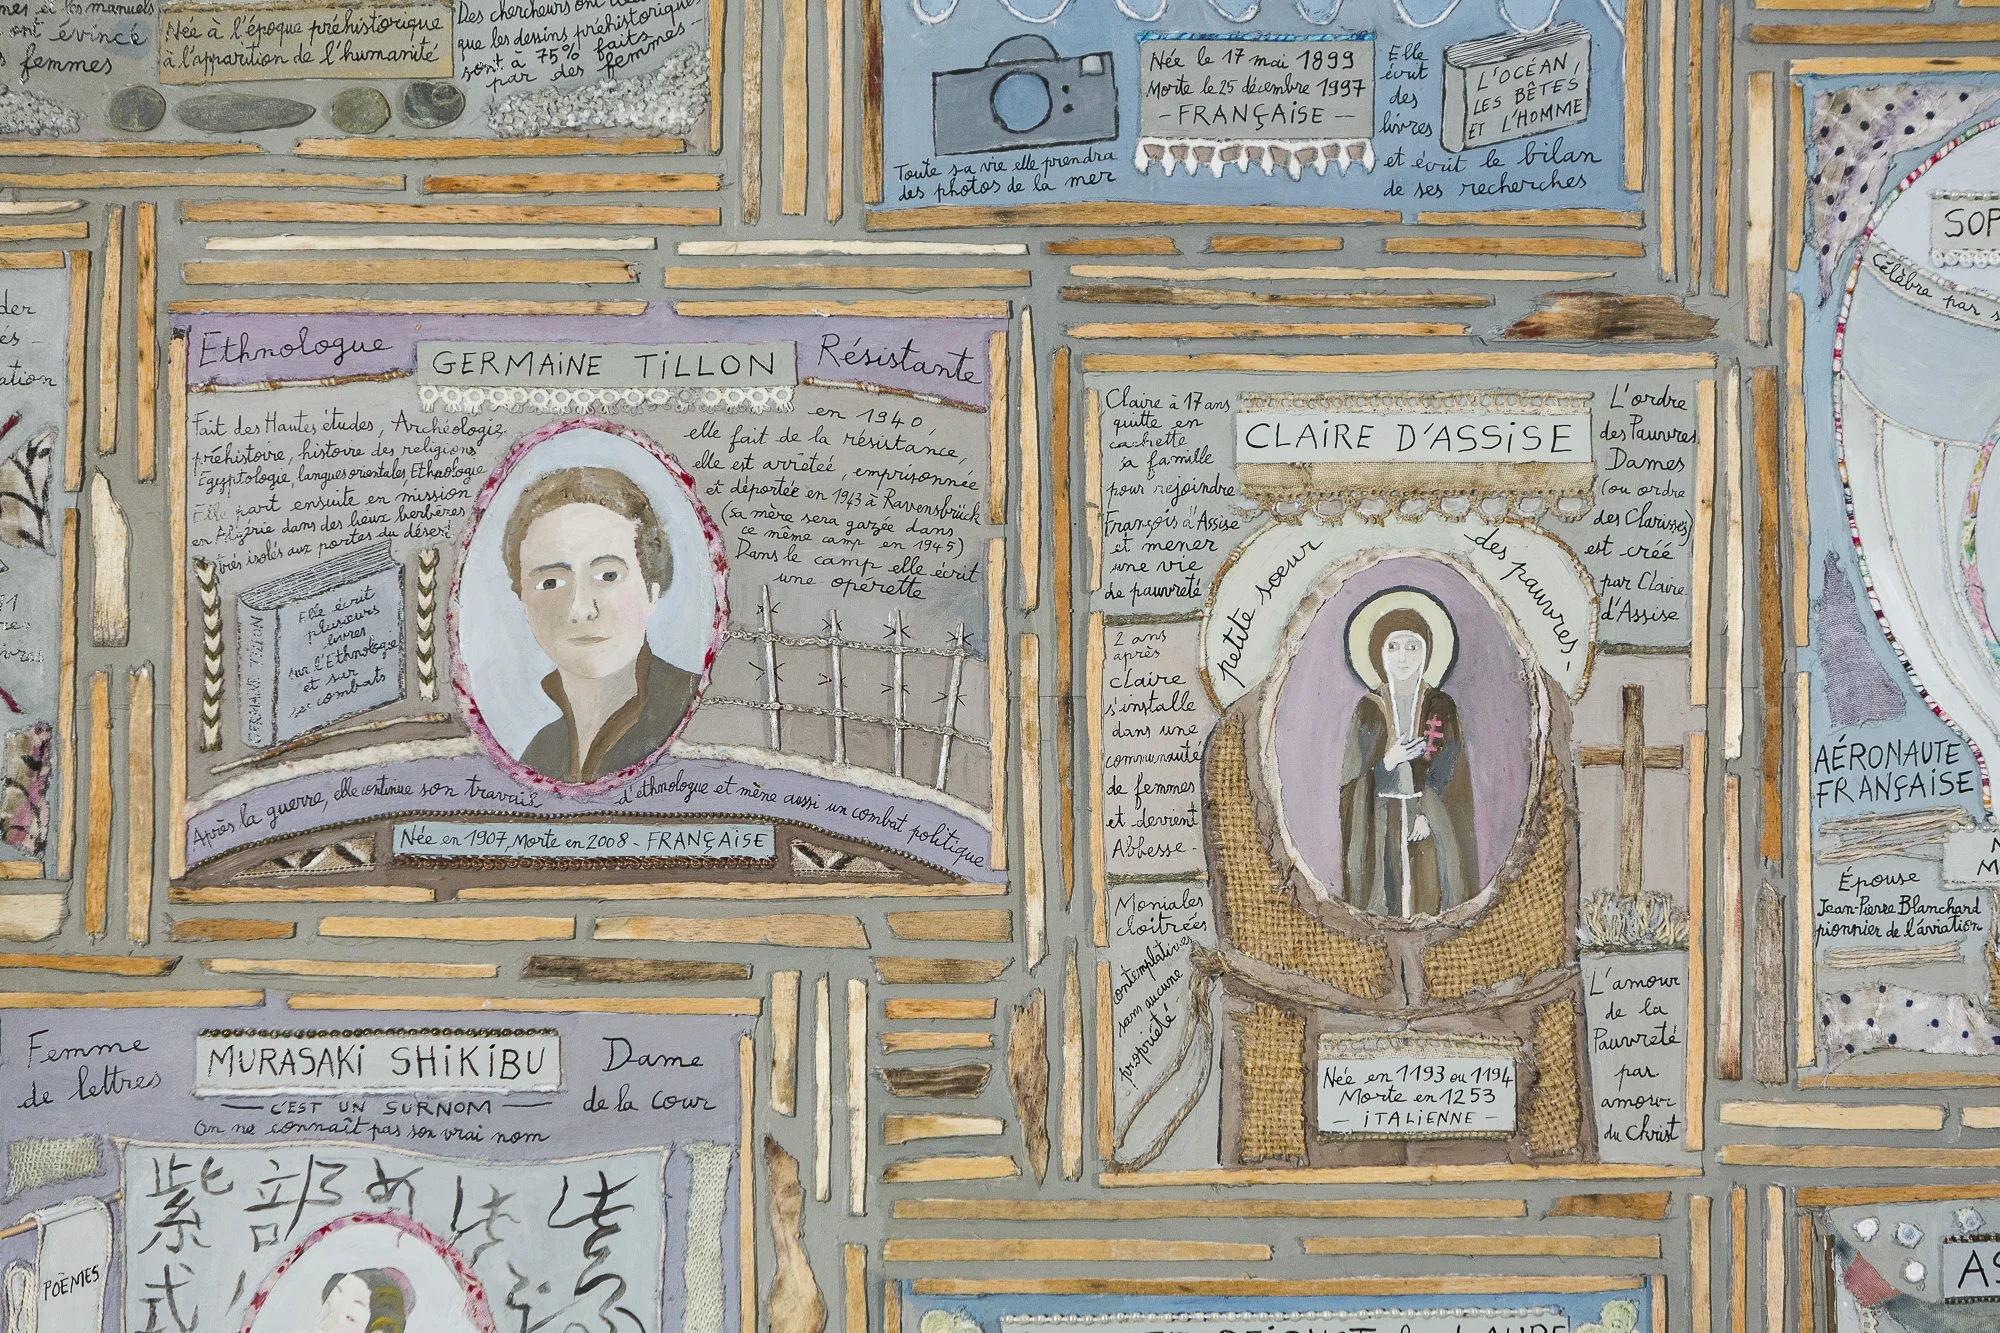 mes et les manuels
ont évincé
femmes
Née à l'époque préhistorique
à l'apparition de l'humanité
Des chercheurs ont
que les dessins préhistoriques
sont à 75% faits
par des femmes
Née le 17 mai 1899
Morte le 25 décembre 1997
- FRANÇAiSE -
Toute sa vie elle prendra
des photos de la mer
Elle
écrit
des
livres
L'OCÉAN,
LES BÊTES
ET L'HOMME
et écrit le bilan
de ses recherches
SOP
Célèbre par s
Ethnologue
GERMAiNE TiLLON
Résistante
Fait des Hautes études, Archéologie
préhistoire, histoire des religions
Egyptologie, langues orientales, Ethnologie
Elle part ensuite en mission
en Algérie dans des lieux berbères
très isolés aux portes du désert
en 1940,
elle fait de la résistance,
elle est arrêteé, emprisonnée
et déportée en 1943 à Ravensbrück
(sa mère sera gazée dans
ce même camp en 1945)
Dans le camp elle écrit
une opérette
GERMAINE TILLON
Elle écrit
plusieurs
livres
sur l'Ethnologie
et sur
ses combats
Après la guerre, elle continue son travail d'ethnologue et mène aussi un combat politique
Née en 1907, Morte en 2008 - FRANÇAiSE
CLAiRE D'ASSiSE
Claire à 17 ans
quitte en
cachette
sa famille
pour rejoindre
François d'Assise
et mener
une vie
de pauvreté
2 ans
après
claire
s'installe
dans une
communauté
de femmes
et devient
Abbesse -
Moniales
cloitrées
contemplatives
sans aucune
propriété -
petite sœur des pauvres -
L'ordre
des Pauvres
Dames
(ou ordre
des Clarisses)
est créé
par Claire
d'Assise
L'amour
de la
Pauvreté
par
amour
du Christ
Née en 1193 ou 1194
Morte en 1253
- iTALiENNE -
AÉRONAUTE
FRANÇAiSE
Épouse
Jean-Pierre Blanchard
pionnier de l'aviation
Femme
de lettres
MURASAKi SHiKiBU
Dame
de la cour
— C'EST UN SURNOM —
On ne connaît pas son vrai nom
紫
式
部
POÈMES
AS